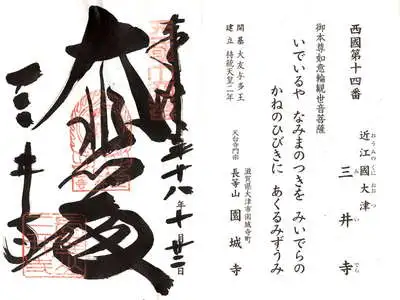 西國第十四番
近江國大津 三井寺
おうみのくに おおつ み い でら
御本尊如意輪観世音菩薩
いでいるや なみまのつきを みいでらの
かねのひびきに あくるみずうみ
開基 大友与多王
建立 持統天皇二年
滋賀県大津市園城寺町
天台寺門宗 長等山 園城寺
奉拝 平成十八年十月廿二日
大悲殿
三井寺